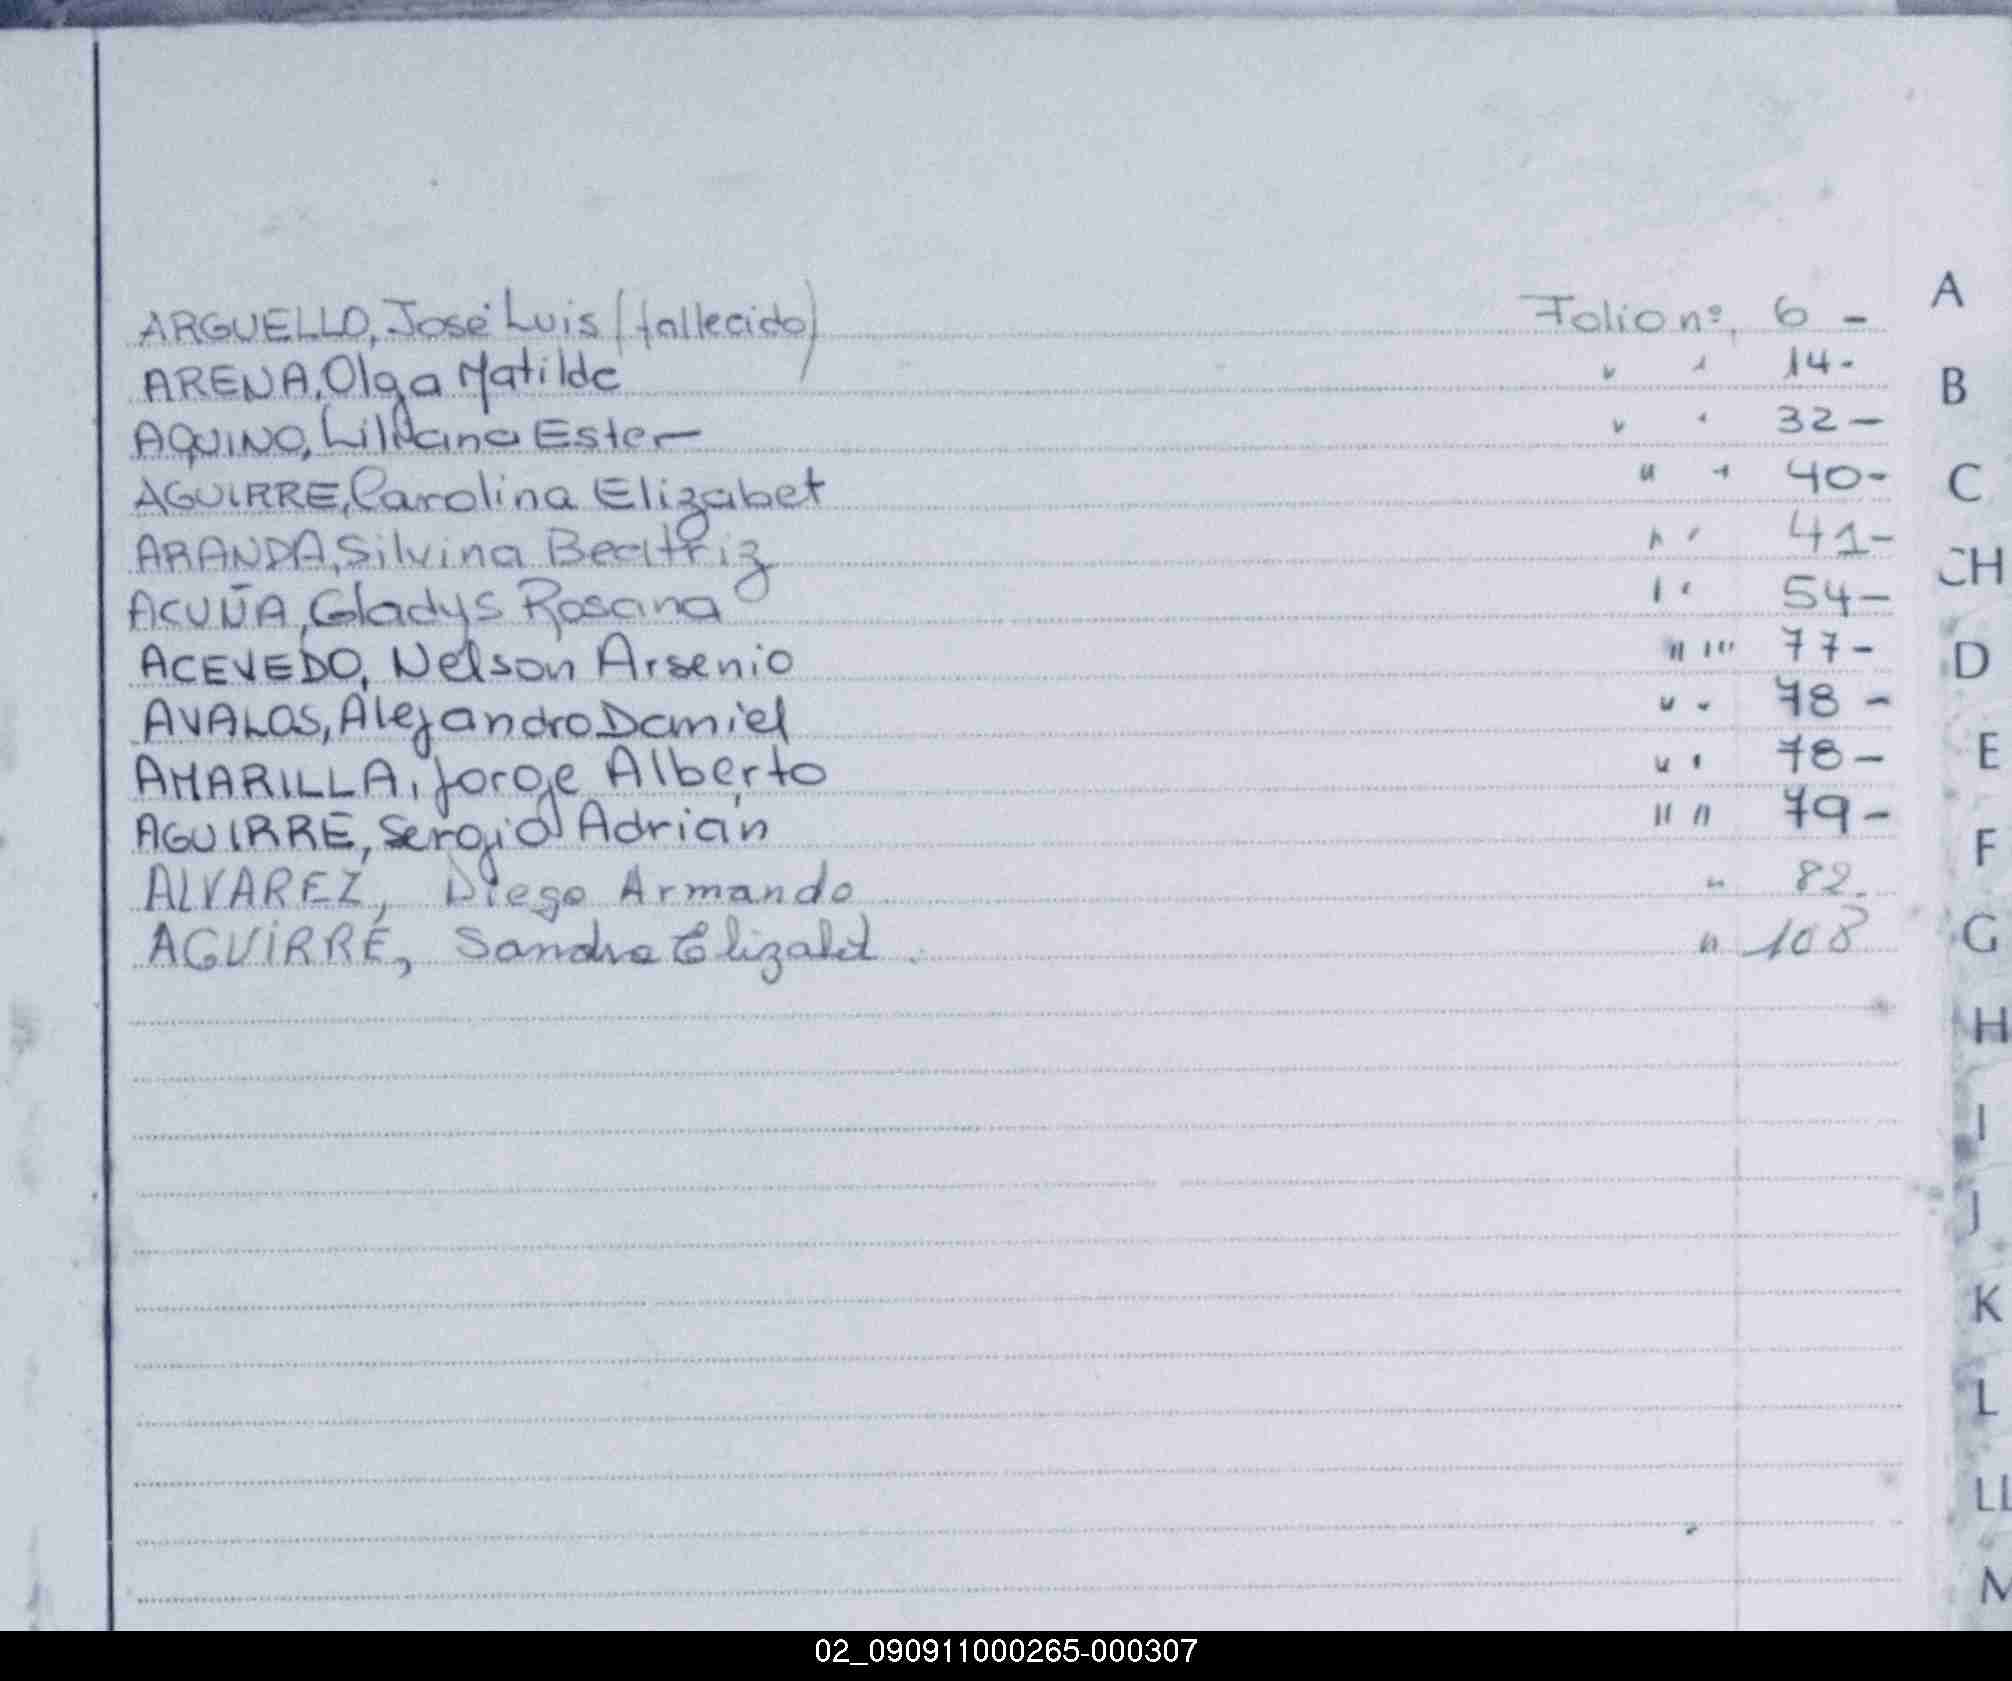 ARGUELLO, José Luis (fallecido) Folio nº, 6 -
ARENA, Olga Matilde " " 14-
AQUINO, Liliana Ester — " " 32 —
AGUIRRE, Carolina Elizabet " " 40-
ARANDA, Silvina Beatriz " " 41-
ACUÑA, Gladys Rosana " " 54 —
ACEVEDO, Nelson Arsenio " " 77-
AVALOS, Alejandro Daniel " " 78 -
AMARILLA, Jorge Alberto " " 78 —
AGUIRRE, Sergio Adrián " " 79 -
ALVAREZ, Diego Armando " 82.
AGUIRRE, Sandra Elizabet. " 108
A
B
C
CH
D
E
F
G
H
I
J
K
L
LL
M
02_090911000265-000307